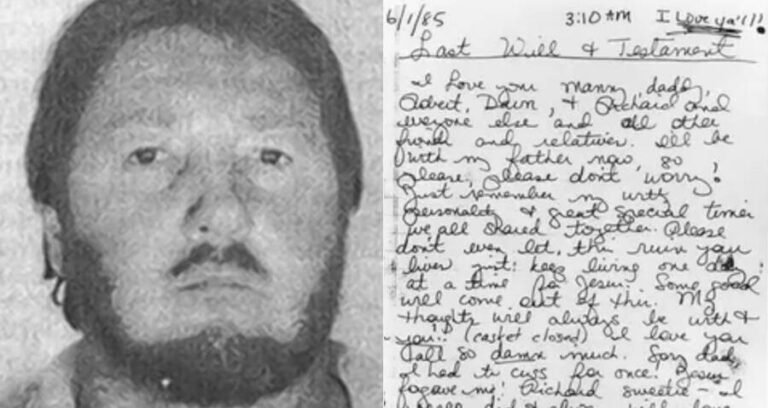 6/1/85 3:10 AM I Love ya'll!
Last Will & Testament
I Love you mamy, daddy,
Robert, Dawn, & Richard and
everyone else and all other
friends and relatives. I'll be
with my father now, so
please, please don't worry!
Just remember my witty
personality & great special times
we all shared together. Please
don't ever let this ruin your
lives just keep living one day
at a time for Jesus. Some good
will come out of this. My
thoughts will always be with &
you!! (casket closed) I love you
all so damn much. Sorry dad,
I had to cuss for once! Jesus
forgave me! Richard sweetie – I